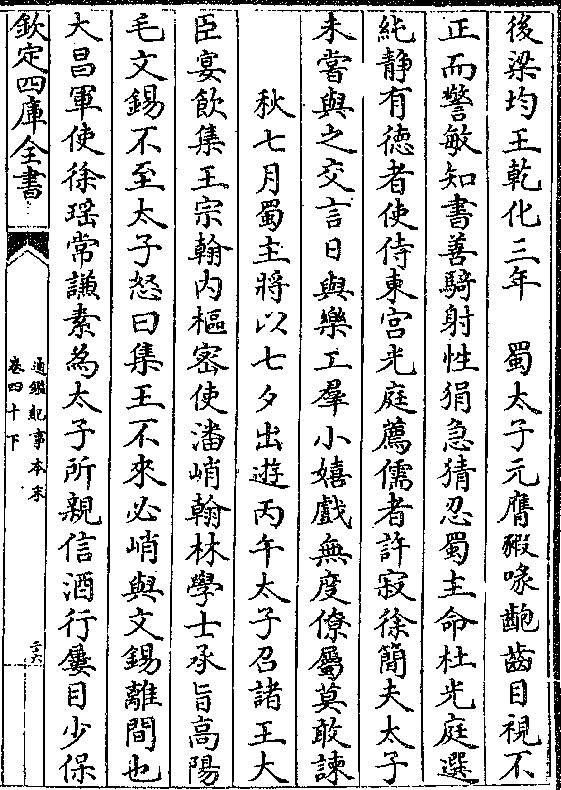 後梁均王乾化三年　蜀太子元膺豭喙齙齒目視不
正而警敏知書善騎射性狷急猜忍蜀主命杜光庭選
純静有徳者使侍東宫光庭薦儒者許寂徐簡夫太子
未嘗與之交言日與樂工羣小嬉戲無度僚屬莫敢諫
秋七月蜀主將以七夕出遊丙午太子召諸王大
臣宴飲集王宗翰内樞密使潘峭翰林學士承旨高陽
毛文錫不至太子怒曰集王不來必峭與文錫離間也
大昌軍使徐瑶常謙素為太子所親信酒行屢目少保
欽定四庫全書
通鑑紀事本末
卷四十下
二十六